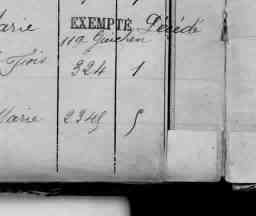 Marie EXEMPTÉ Décédé
119 Guichen
Fois 324 1
Marie 2345 5